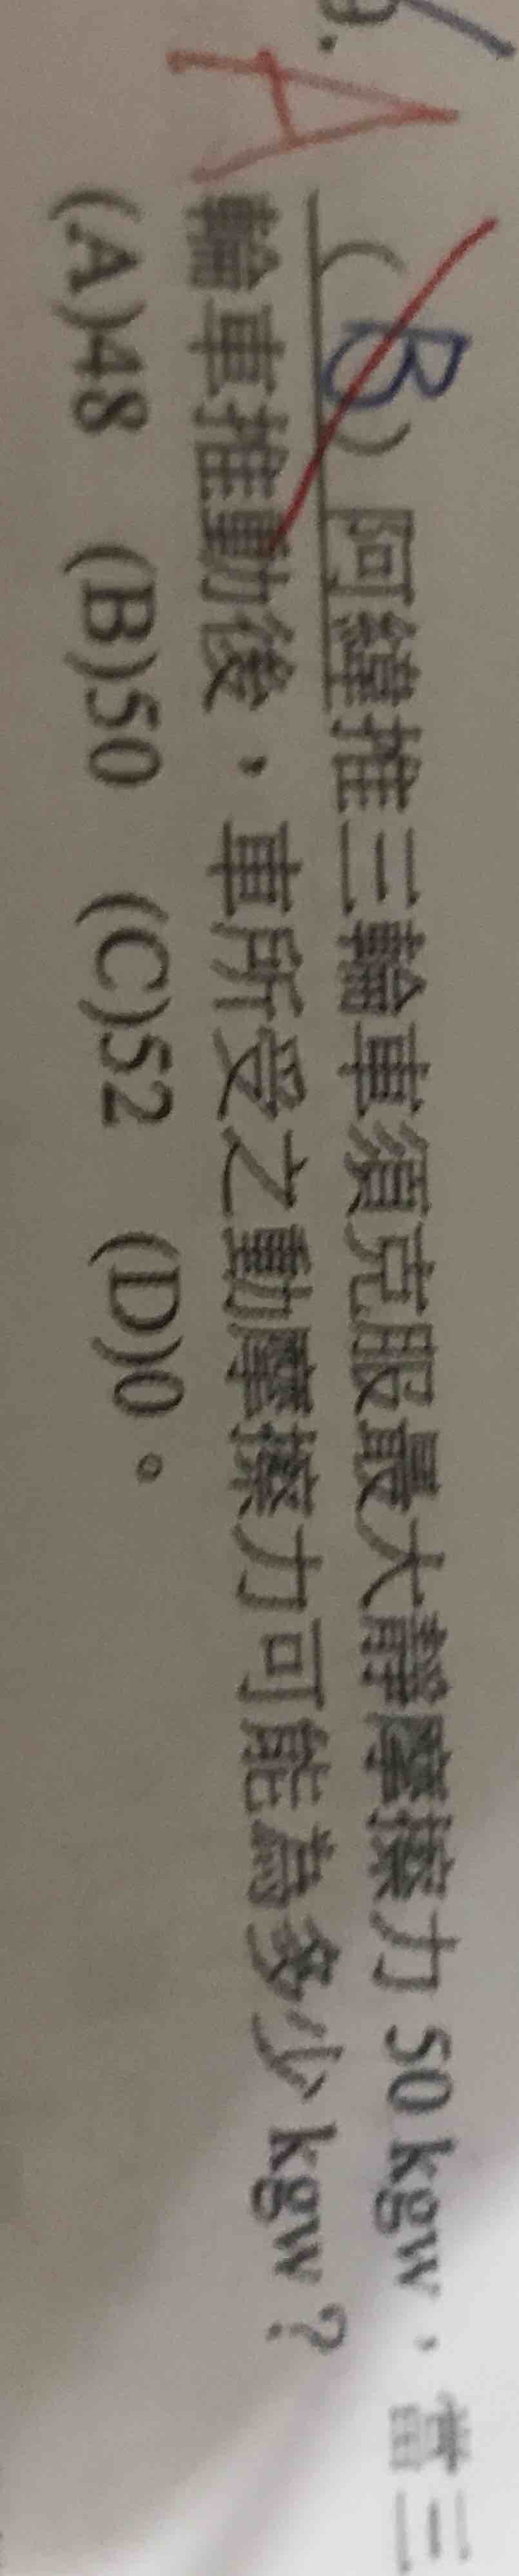 9.
A
(B)阿緯推三輪車須克服最大靜摩擦力 50 kgw,當三
輪車推動後,車所受之動摩擦力可能為多少 kgw?
(A)48 (B)50 (C)52 (D)0。